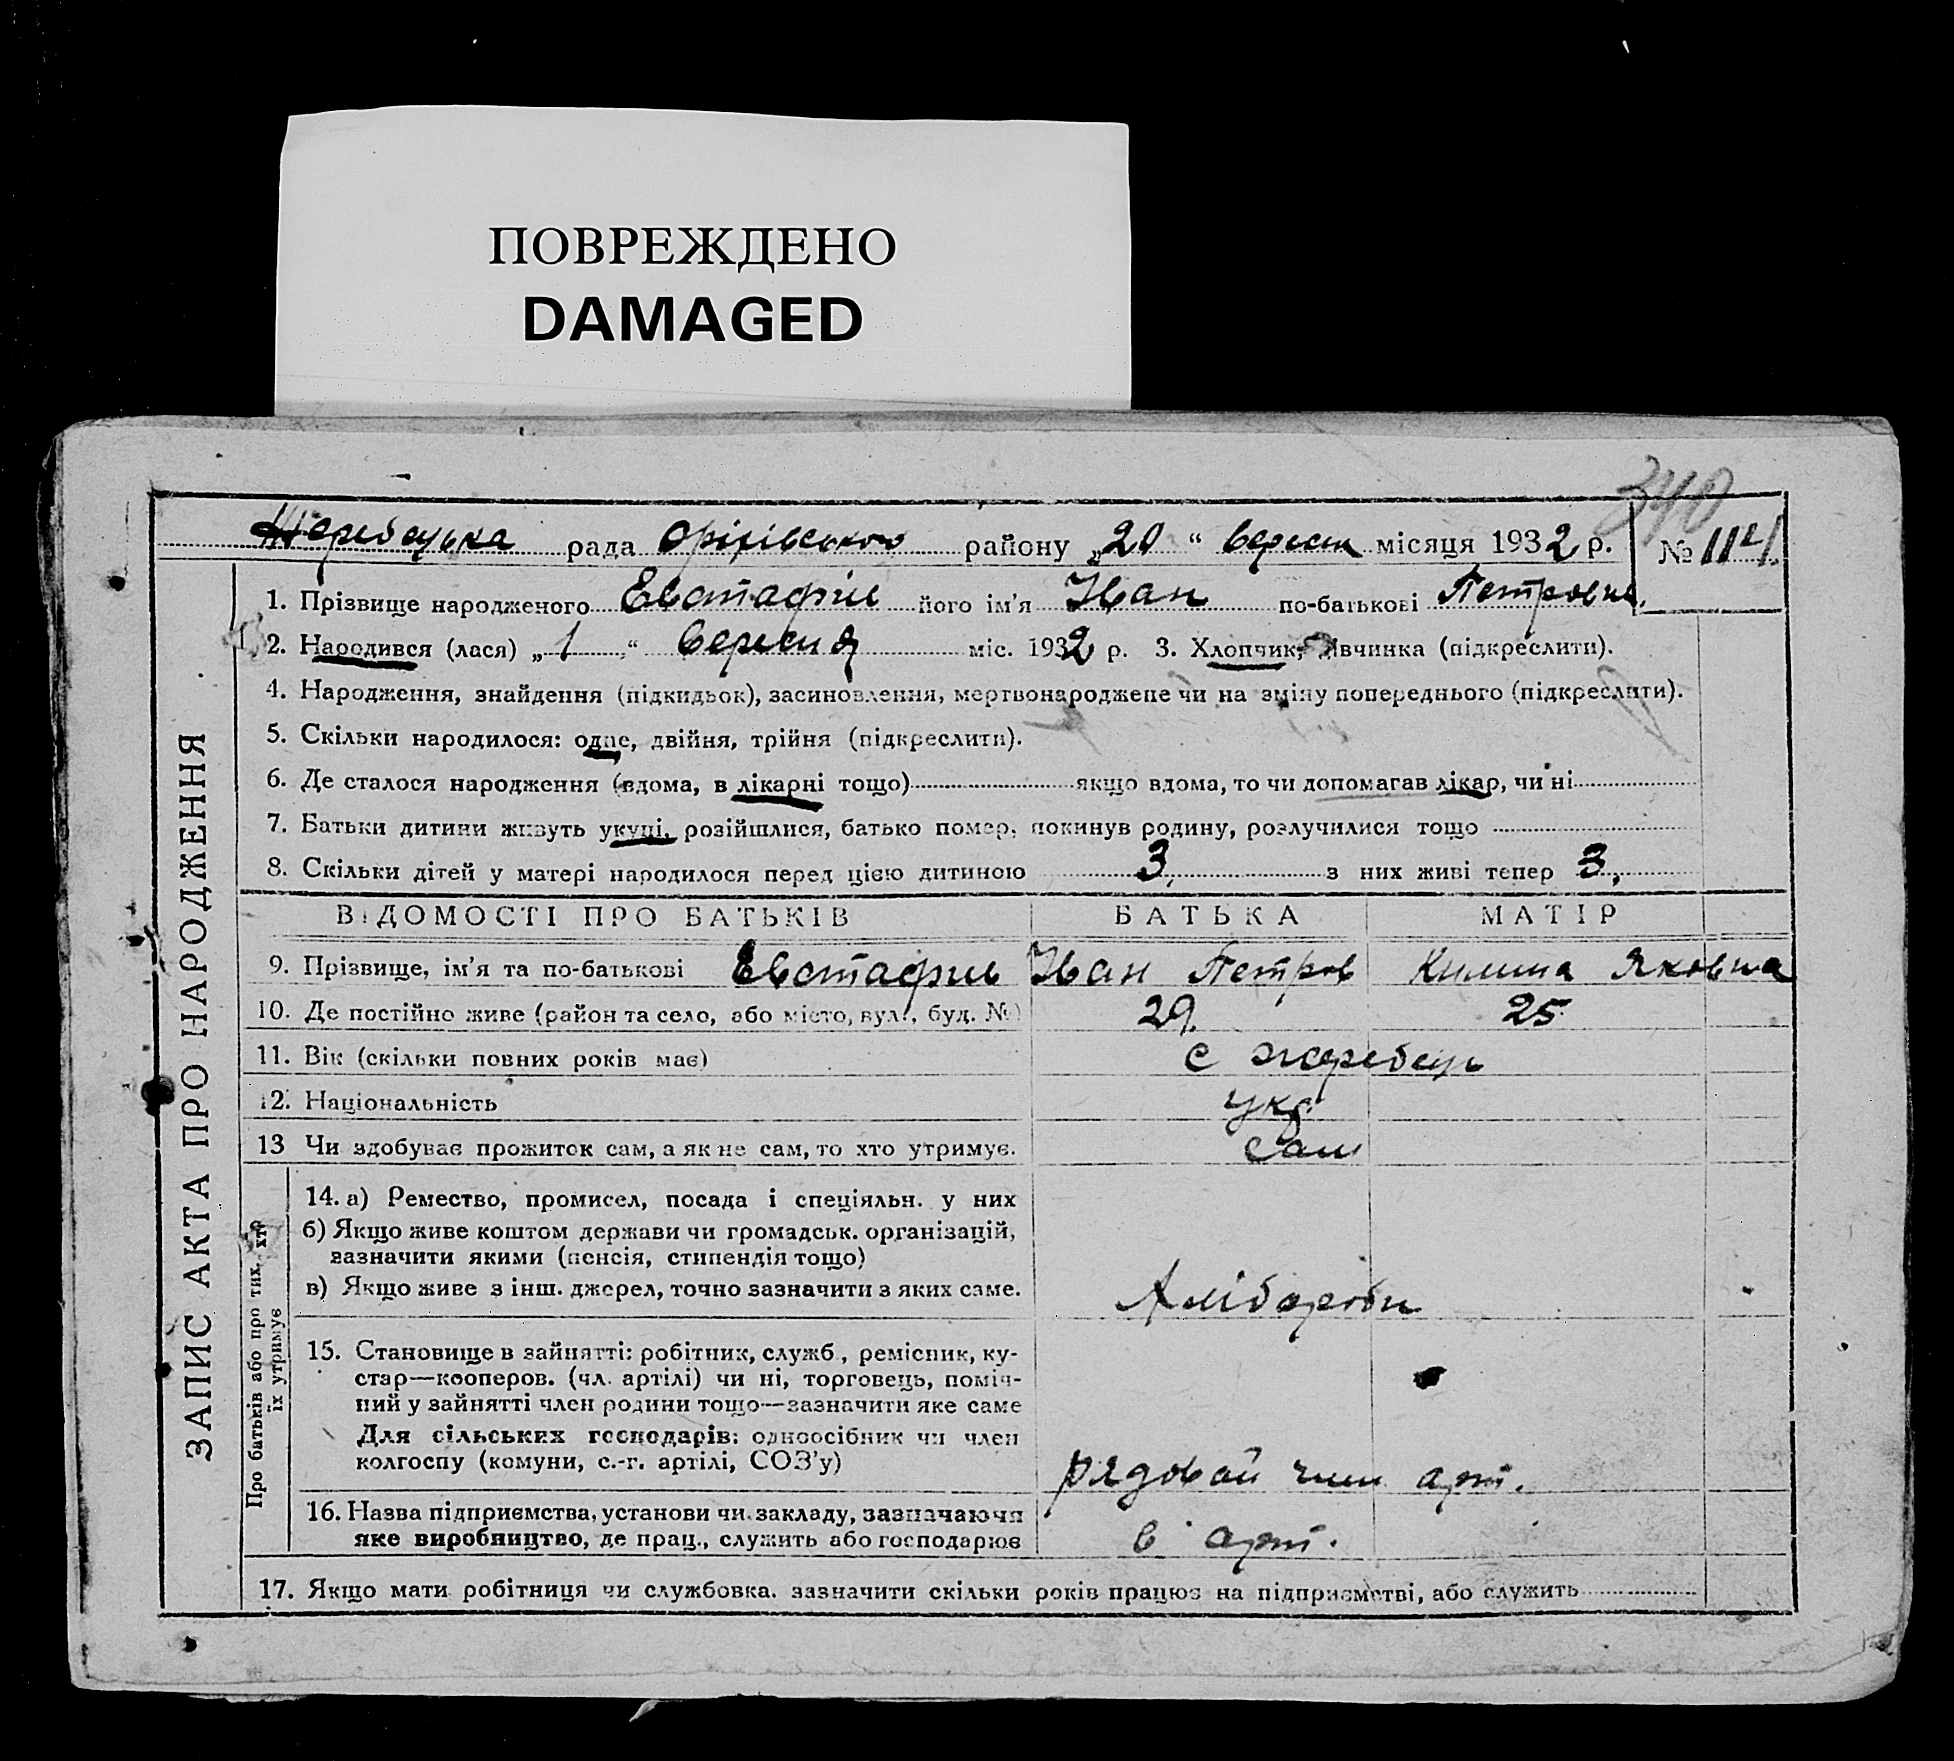 ПОВРЕЖДЕНО
DAMAGED
340
Жеребецька рада Оріхівського району „20“ Вересн місяця 1932 р. №
1. Прізвище народженого Евстафіів його ім'я Іван по-батькові Петрович.
2. Народився (лася) „1“ Вересня міс. 1932 р. 3. Хлопчик, дівчинка (підкреслити).
4. Народження, знайдення (підкидьок), засиновлення, мертвонароджене чи на зміну попереднього (підкреслити).
5. Скільки народилося: одне, двійня, трійня (підкреслити).
6. Де сталося народження (вдома, в лікарні тощо) якщо вдома, то чи допомагав лікар, чи ні
7. Батьки дитини живуть укупі, розійшлися, батько помер, покинув родину, розлучилися тощо
8. Скільки дітей у матері народилося перед цією дитиною 3, з них живі тепер 3,
ВІДОМОСТІ ПРО БАТЬКІВ БАТЬКА МАТІР
9. Прізвище, ім'я та по-батькові Евстафив Іван Петров Килина Яковна
10. Де постійно живе (район та село, або місто, вул., буд. №) 29. 25.
11. Вік (скільки повних років має) с жеребець
12. Національність укр.
13 Чи здобуває прожиток сам, а як не сам, то хто утримує. сам
14. а) Ремество, промисел, посада і спеціяльн. у них
б) Якщо живе коштом держави чи громадськ. організацій,
зазначити якими (пенсія, стипендія тощо)
в) Якщо живе з інш. джерел, точно зазначити з яких саме. Хліборобн
15. Становище в зайнятті: робітник, служб., ремісник, ку-
стар—кооперов. (чл. артілі) чи ні, торговець, поміч-
ний у зайнятті член родини тощо—зазначити яке саме
Для сільських господарів: одноосібник чи член
колгоспу (комуни, с.-г. артілі, СОЗ'у) рядовой член арт.
16. Назва підприємства, установи чи закладу, зазначаючи
яке виробництво, де прац., служить або господарює в арт.
17. Якщо мати робітниця чи службовка, зазначити скільки років працює на підприємстві, або служить
ЗАПИС АКТА ПРО НАРОДЖЕННЯ
Про батьків або про тих, хто
їх утримує